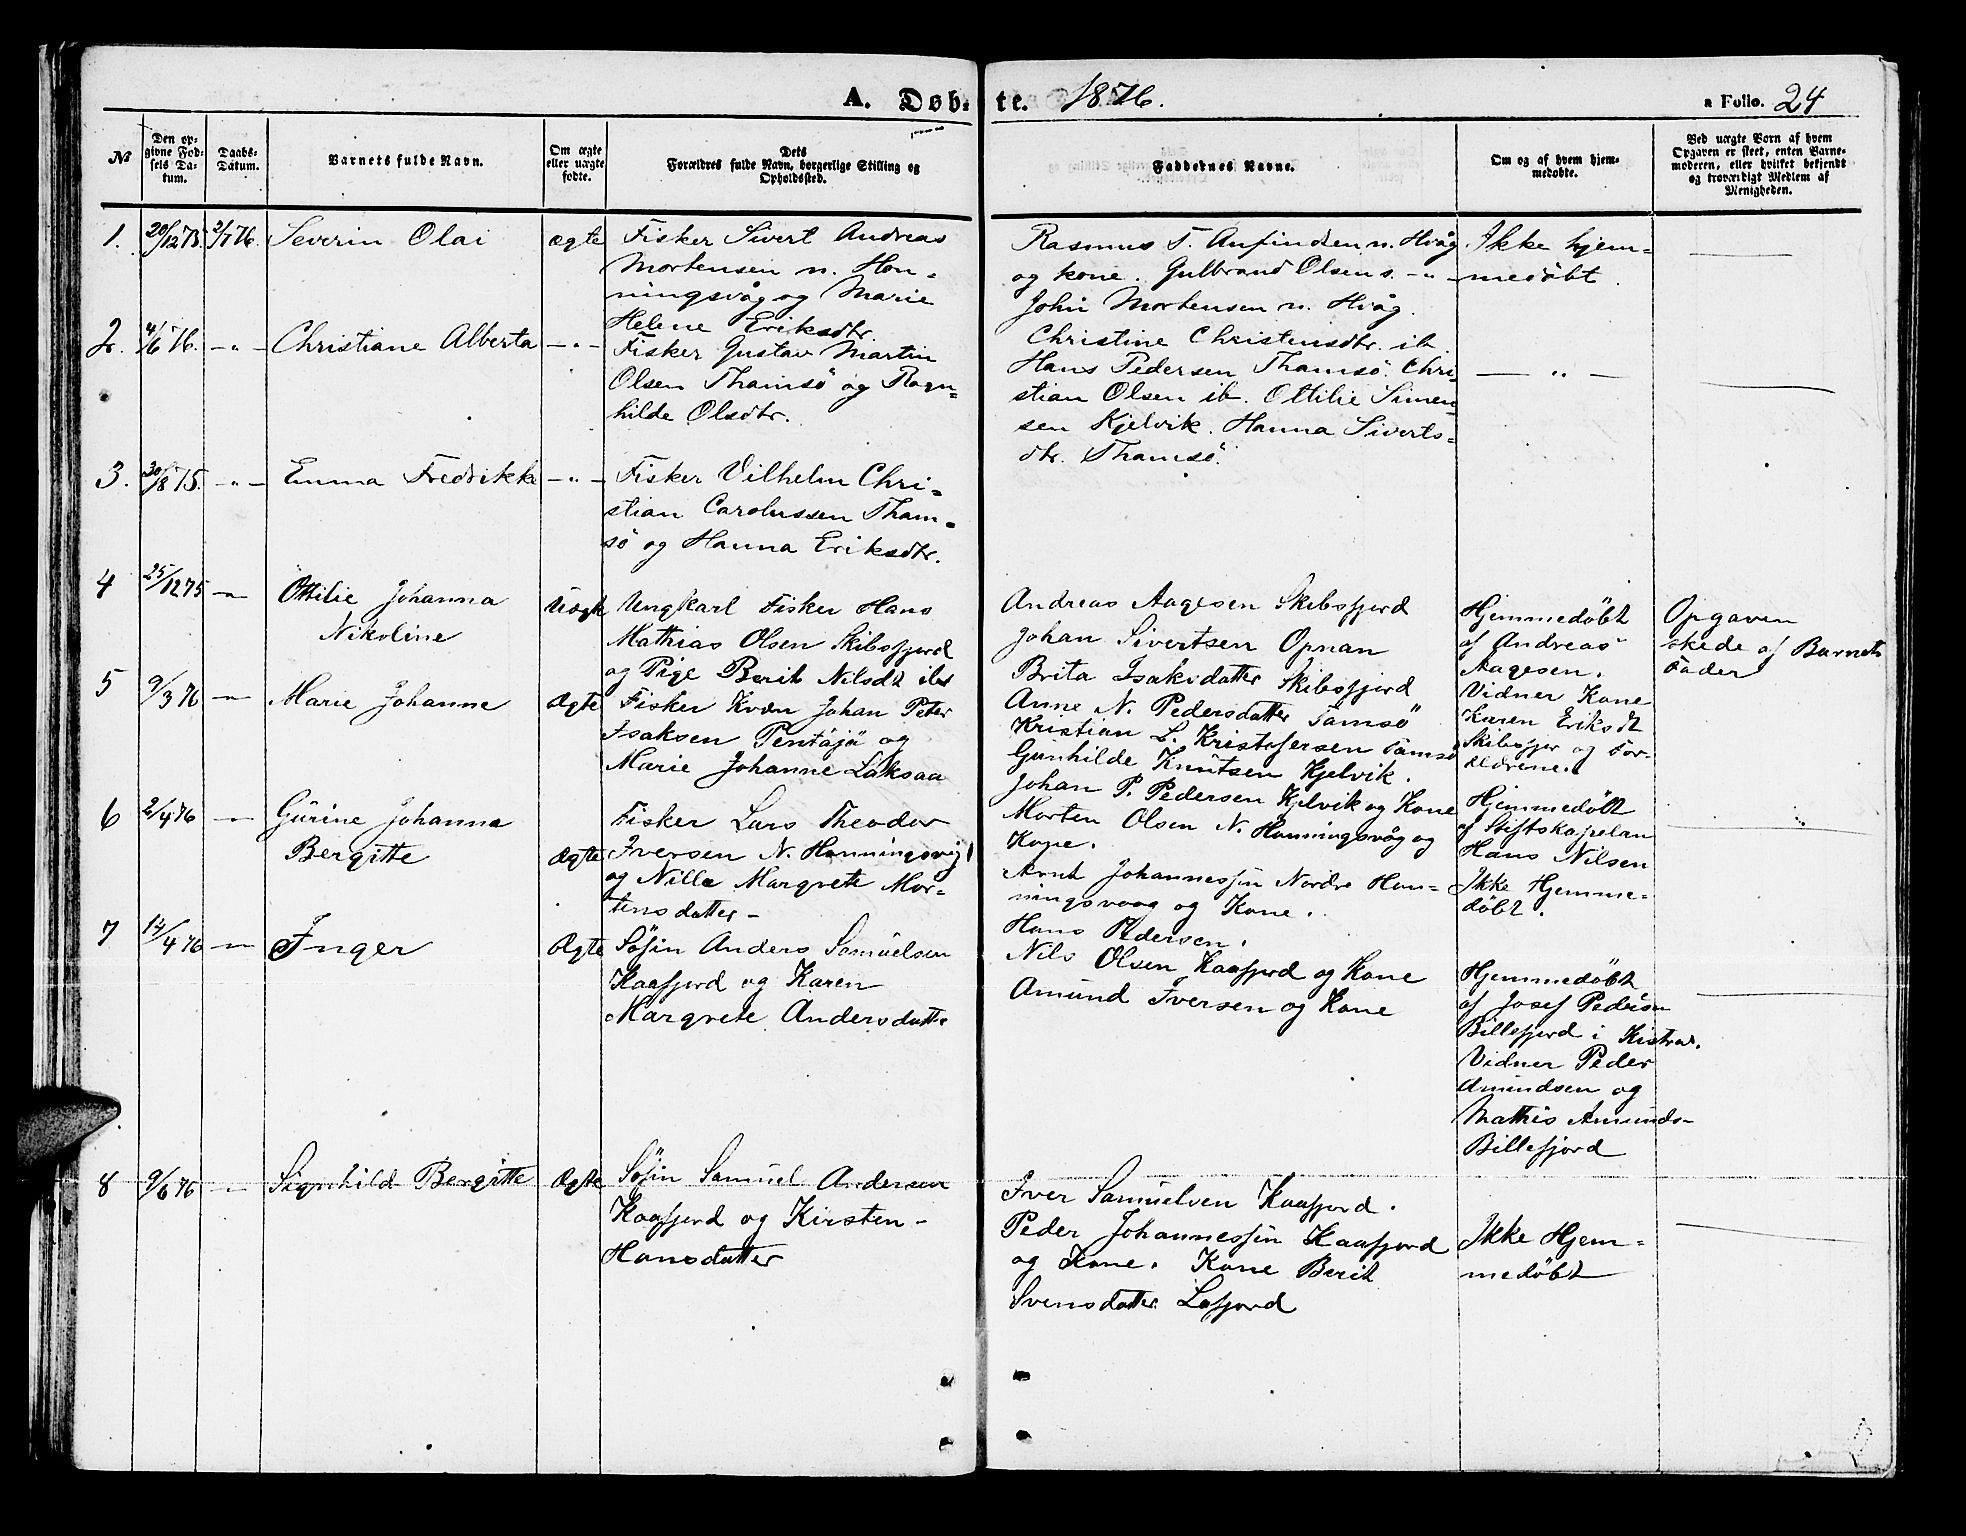 A. Døb-
te. 1876.
a Folio. 24
No
Den op-
givne Fød-
sels Da-
tum.
Daabs-
Datum.
Barnets fulde Navn.
Om ægte
eller uægte
fødte.
Dets
Forældres fulde Navn, borgerlige Stilling og
Opholdssted.
Faddernes Navne.
Om og af hvem hjem-
medøbte.
Ved uægte Børn af hvem
Opgaven er skeet, enten Barne-
moderen, eller hvilket bekjendt
og troværdigt Medlem af
Menigheden.
1. 20/12 75. 2/7 76. Severin Olai ægte
Fisker Sivert Andreas
Mortensen n. Hon-
ningsvåg og Marie
Helene Eriksdtr.
Rasmus T. Anfindsen n. Hvåg
og kone. Gulbrand Olsen s. -"-
John Mortensen n. Hvåg.
Christine Christensdtr. ib
Ikke hjem-
medøbt.
2. 4/6 76. -"- Christiane Alberta -"-
Fisker Gustav Martin
Olsen Thamsö og Ragn-
hilde Olsdtr.
Hans Pedersen Thamsö. Chri-
stian Olsen ib. Ottilie Simen-
sen Kjelvik. Hanna Siverts-
dtr. Thamsö.
- " -
3. 30/8 75. -"- Emma Fredrikke -"-
Fisker Vilhelm Chri-
stian Carolussen Tham-
sö og Hanna Eriksdtr.
4 25/12 75 -"- Ottilie Johanna
Nikoline
Uægte
Ungkarl Fisker Hans
Mathias Olsen Skibsfjord
og Pige Berit Nilsdt ibd
Andreas Aagesen Skibsfjord
Johan Sivertsen Opnan
Brita Isaksdatter Skibsfjord
Hjemmedøbt
af Andreas
Aagesen.
Vidner Kone
Karen Eriksdt
Skibsfjor og For-
ældrene.
Opgaven
skede af Barnets
Fader
5 9/3 76 -"- Marie Johanne Ægte
Fisker Kvæn Johan Peter
Isaksen Pentäjä og
Marie Johanne Laksaa
Anne N. Pedersdatter Tamsö
Kristian L. Kristofersen Tamsö
Gunhilde Knutsen Kjelvik.
Johan P. Pedersen Kjelvik og Kone
Hjemmedøbt
af Stiftskapelan
Hans Nilsen
6 2/4 76 -"- Gurine Johanna
Bergitte
Ægte
Fisker Lars Theodor
Iversen N. Honningsvåg
og Nille Margrete Mor-
tensdatter -
Morten Olsen N. Honningsvåg og
Kone.
Arnt Johannessen Nordre Hon-
ningsvaag og Kone.
Hans Pedersen.
Ikke Hjemme-
døbt.
7 14/4 76 -"- Inger Ægte
Søfin Anders Samuelsen
Kaafjord og Karen
Margrete Andersdatte
Nils Olsen Kaafjord og Kone
Amund Iversen og Kone
Hjemmedøbt
af Josef Pedersen
Billefjord i Kistran.
Vidner Peder
Amundsen og
Mathis Amunds-
Billefjord
8 9/6 76 -"- Signhild Bergitte Ægte
Søfin Samuel Andersen
Kaafjord og Kirsten -
Hansdatter
Iver Samuelsen Kaafjord.
Peder Johannessen Kaafjord
og Kone. Kone Berit
Svensdatter Lafjord
Ikke Hjem-
medøbt